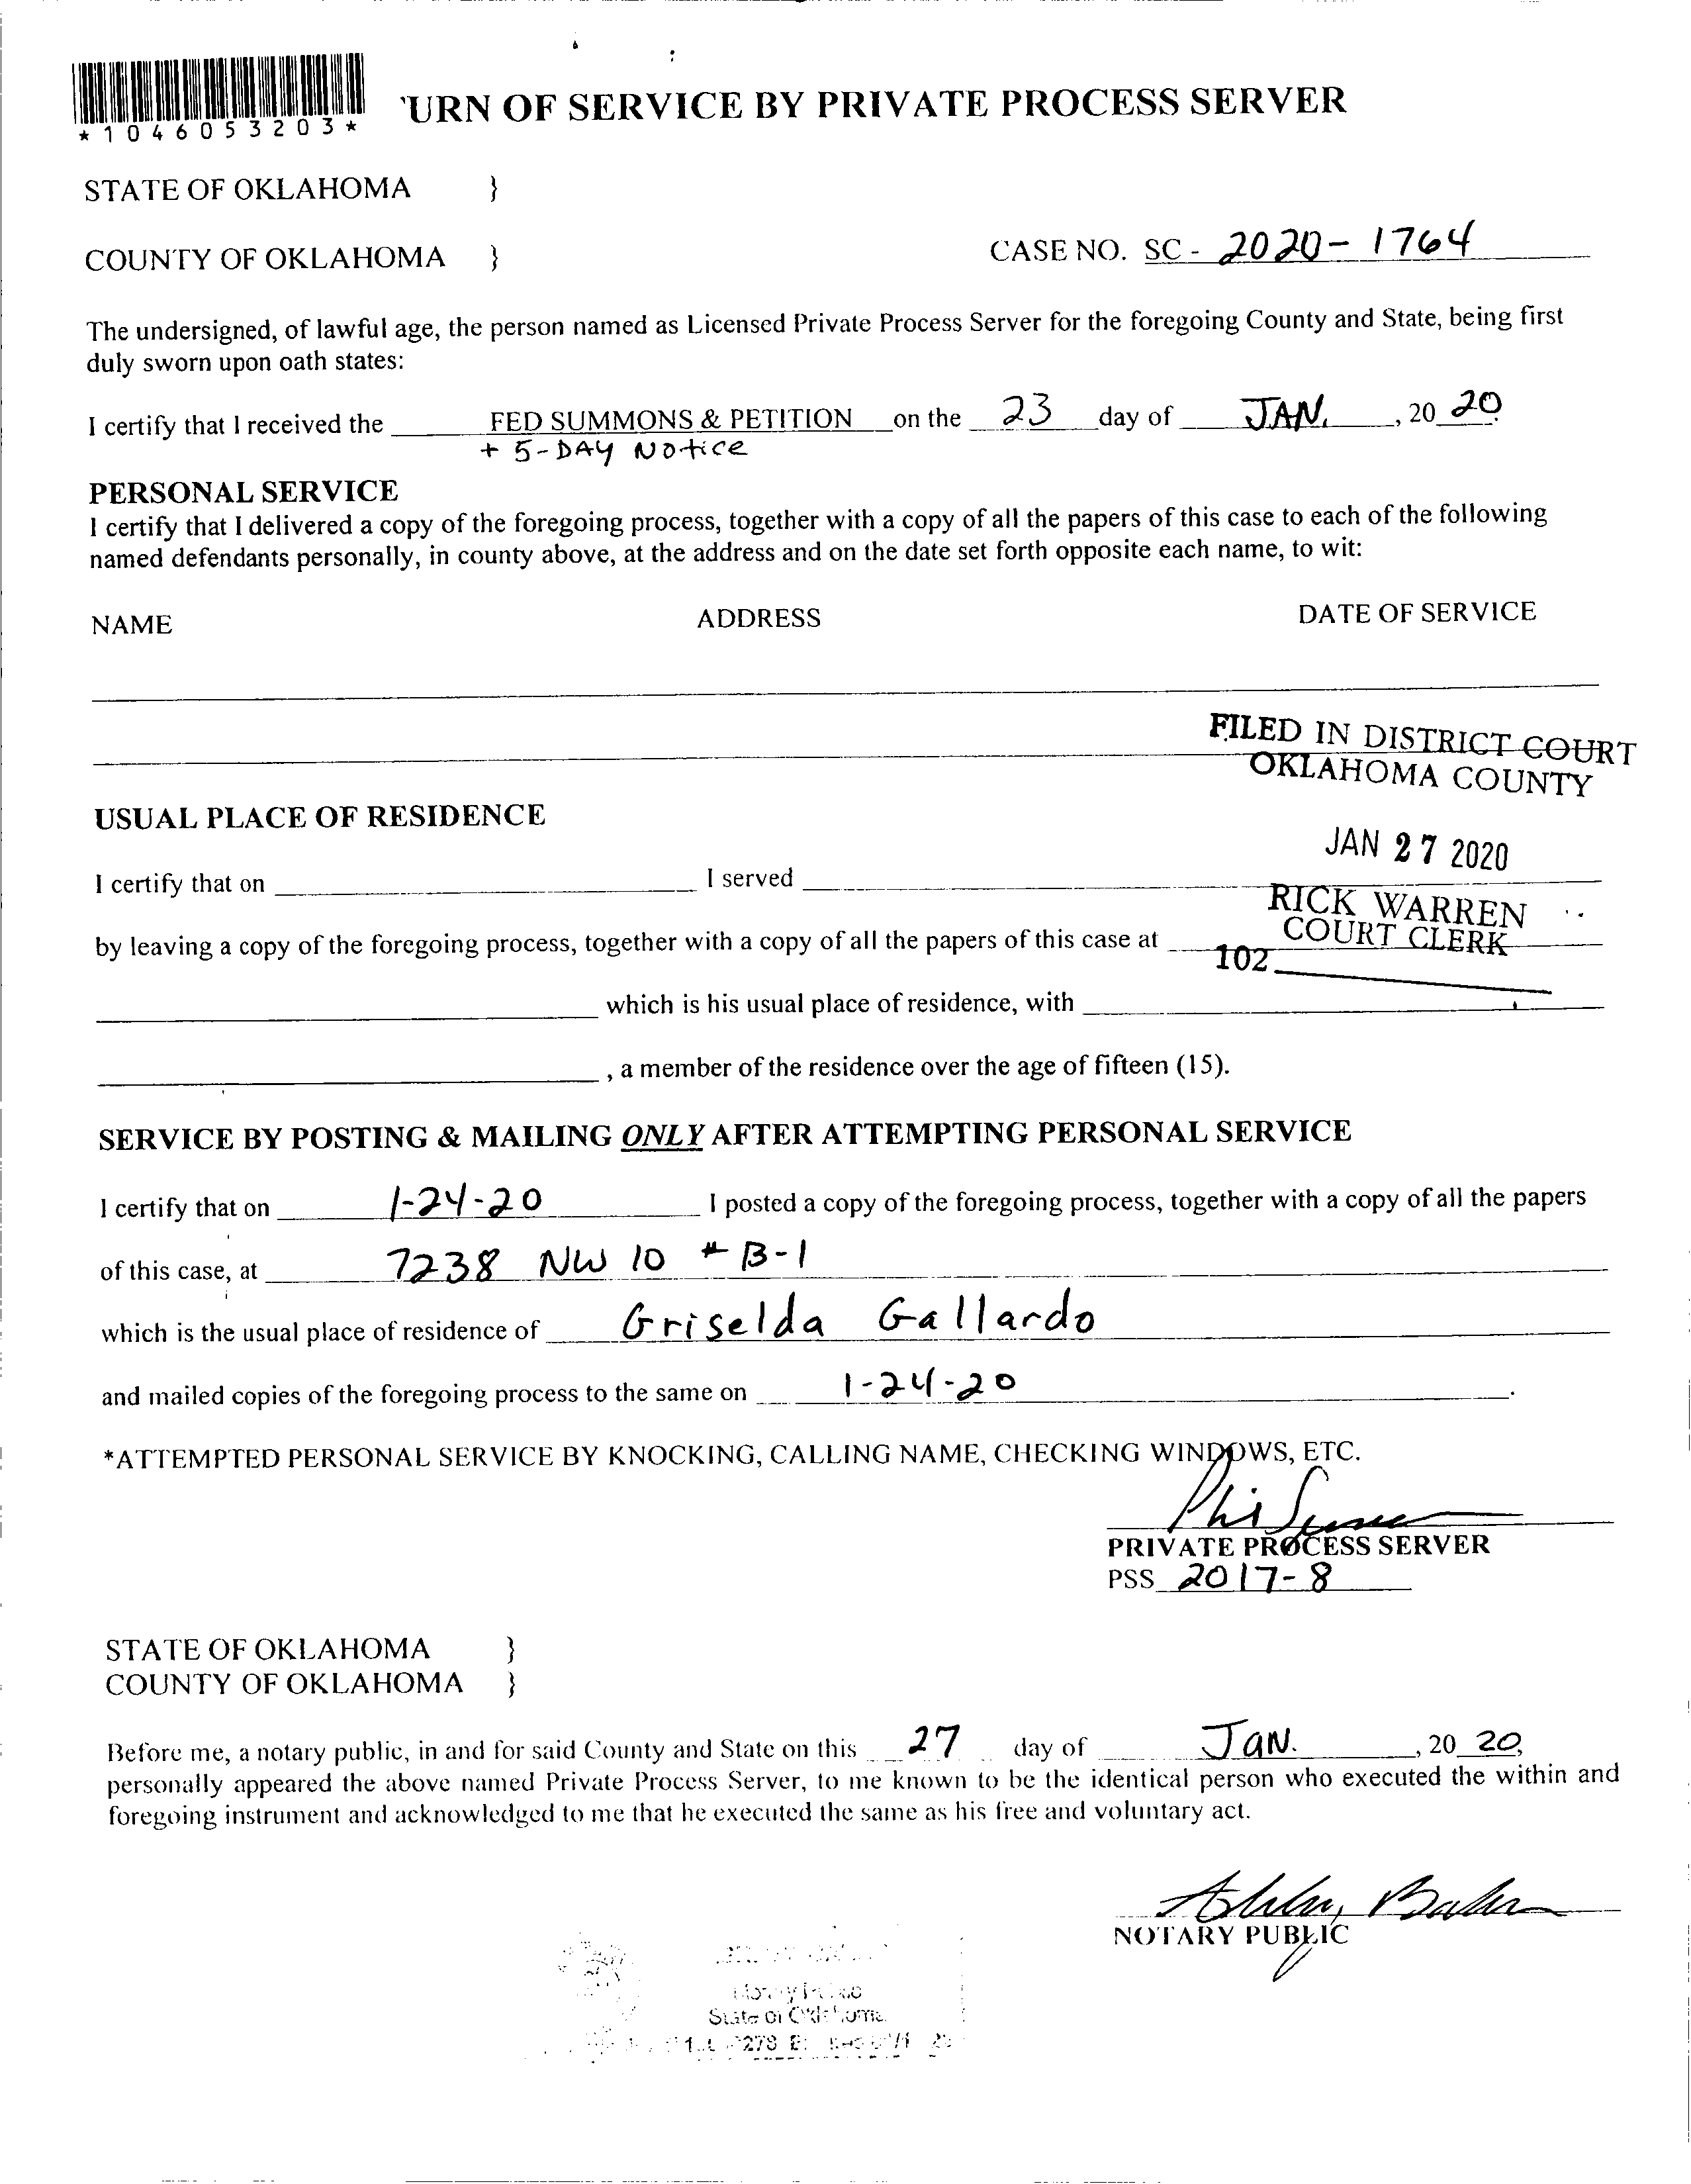 *1046053203*
'URN OF SERVICE BY PRIVATE PROCESS SERVER
STATE OF OKLAHOMA }
COUNTY OF OKLAHOMA } CASE NO. SC - 2020-1764
The undersigned, of lawful age, the person named as Licensed Private Process Server for the foregoing County and State, being first
duly sworn upon oath states:
I certify that I received the FED SUMMONS & PETITION on the 23 day of JAN. , 20 20.
+ 5-DAY Notice
PERSONAL SERVICE
I certify that I delivered a copy of the foregoing process, together with a copy of all the papers of this case to each of the following
named defendants personally, in county above, at the address and on the date set forth opposite each name, to wit:
NAME ADDRESS DATE OF SERVICE
FILED IN DISTRICT COURT
OKLAHOMA COUNTY
USUAL PLACE OF RESIDENCE
JAN 27 2020
I certify that on I served
RICK WARREN
COURT CLERK
by leaving a copy of the foregoing process, together with a copy of all the papers of this case at
102
which is his usual place of residence, with
, a member of the residence over the age of fifteen (15).
SERVICE BY POSTING & MAILING ONLY AFTER ATTEMPTING PERSONAL SERVICE
I certify that on 1-24-20 I posted a copy of the foregoing process, together with a copy of all the papers
of this case, at 7238 NW 10 # B-1
which is the usual place of residence of Griselda Gallardo
and mailed copies of the foregoing process to the same on 1-24-20 .
*ATTEMPTED PERSONAL SERVICE BY KNOCKING, CALLING NAME, CHECKING WINDOWS, ETC.
PRIVATE PROCESS SERVER
PSS 2017-8
STATE OF OKLAHOMA }
COUNTY OF OKLAHOMA }
Before me, a notary public, in and for said County and State on this 27 day of JAN. , 20 20,
personally appeared the above named Private Process Server, to me known to be the identical person who executed the within and
foregoing instrument and acknowledged to me that he executed the same as his free and voluntary act.
NOTARY PUBLIC
State of Oklahoma